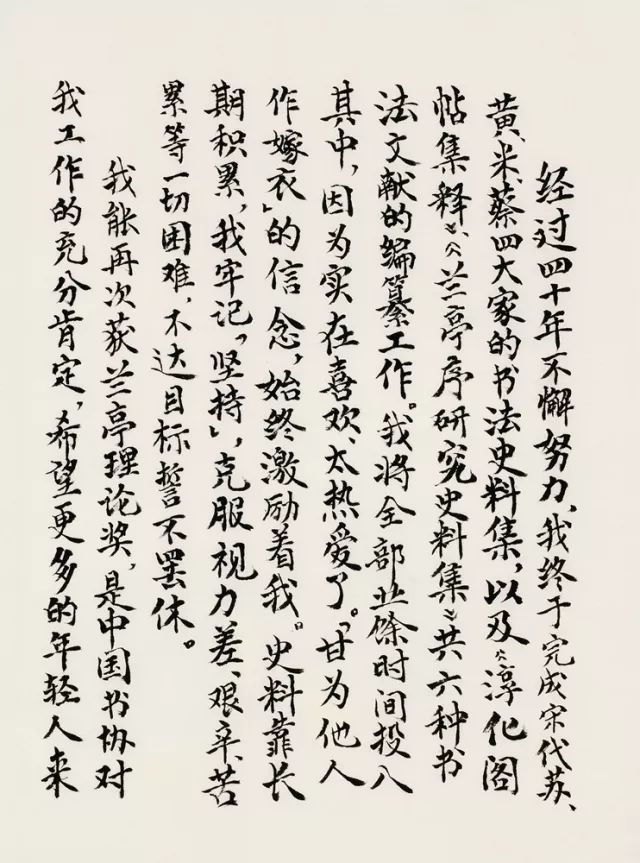 经过四十年不懈努力，我终于完成宋代苏、
黄、米、蔡四大家的书法史料集，以及《淳化阁
帖集释》、《兰亭序研究史料集》共六种书
法文献的编纂工作。我将全部业馀时间投入
其中，因为实在喜欢、太热爱了。「甘为他人
作嫁衣」的信念，始终激励着我。史料靠长
期积累，我牢记「坚持」，克服视力差、艰辛、苦
累等一切困难，不达目标誓不罢休。
我能再次获兰亭理论奖，是中国书协对
我工作的充分肯定，希望更多的年轻人来